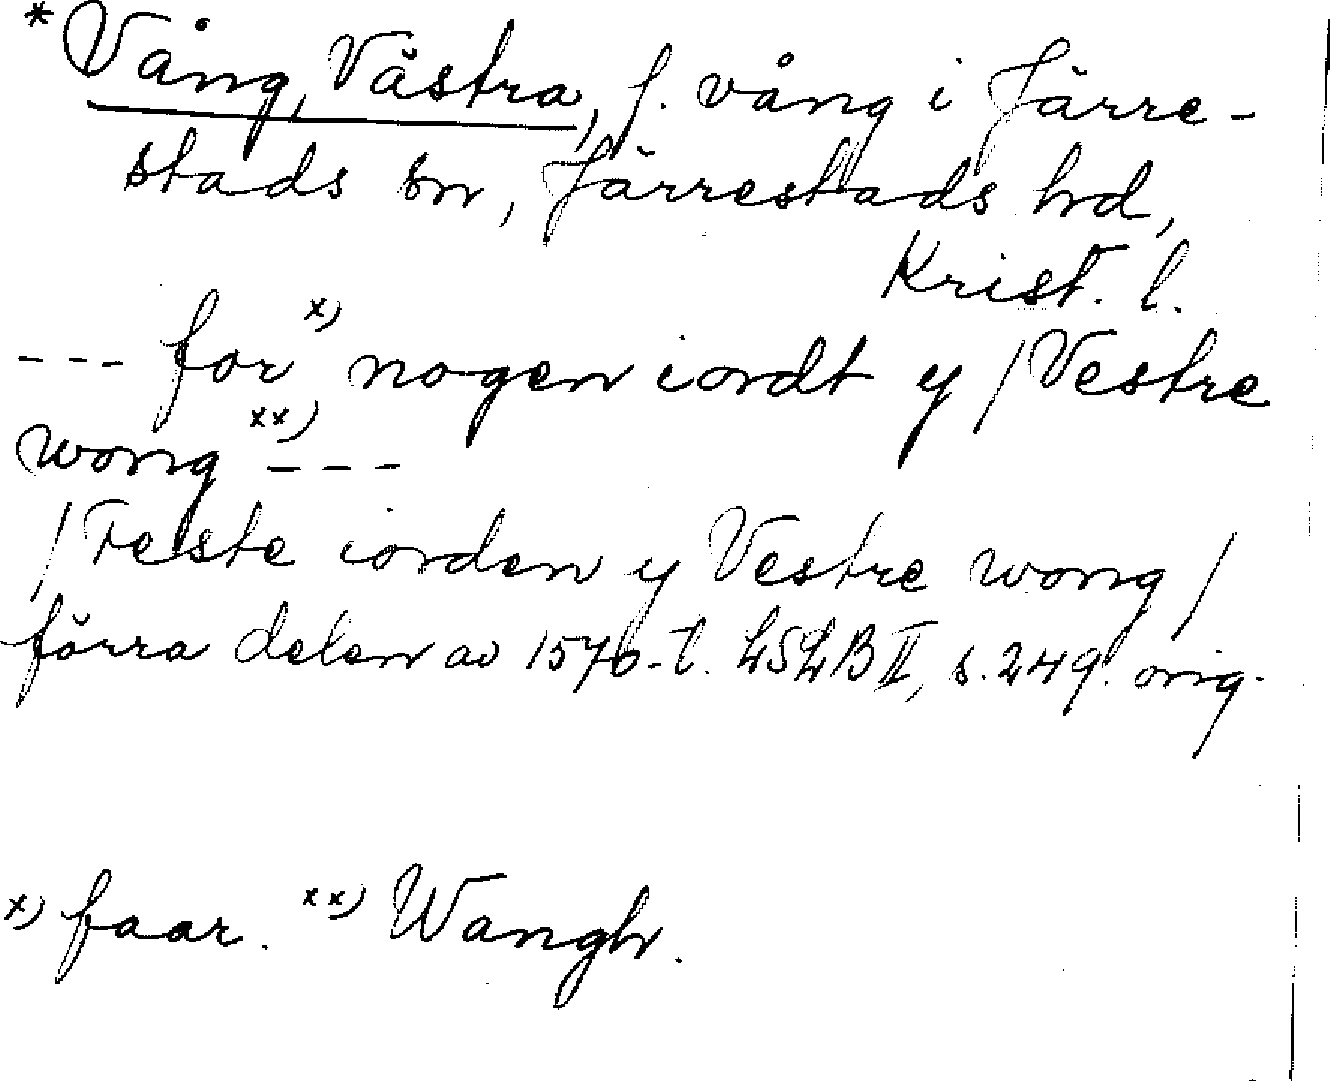 *Vång, Västra, f. vång i Järre-
stads sn, Järrestads hd,
Krist. l.
--- for x) nogen iordt y / Vestre
wong xx) ---
/ Feste iorden y Vestre wong /
förra delen av 1570-t. LSLB II, s. 249. orig.
x) faar. xx) Wangh.